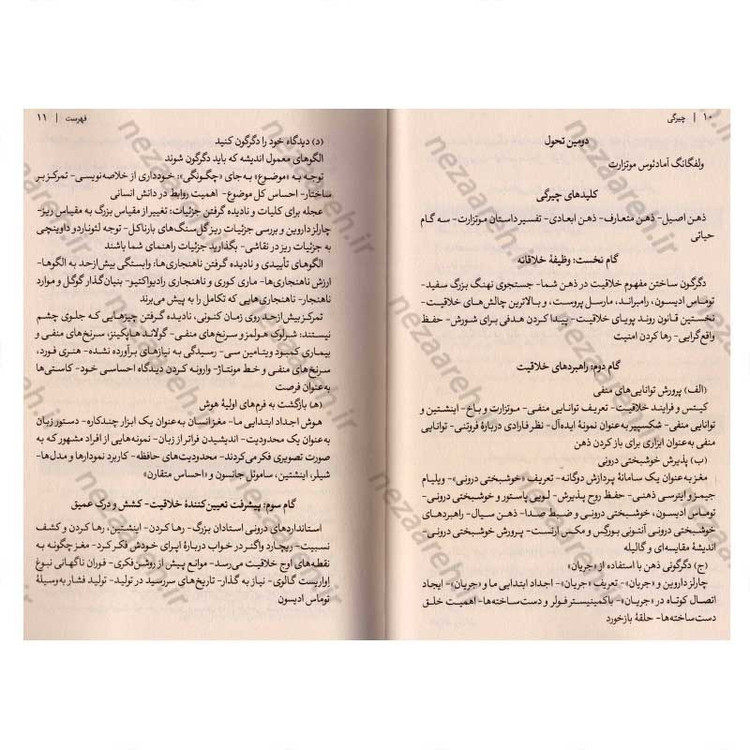 ۱۰ | چیرگی
دومین تحول
ولفگانگ آمادئوس موتزارت
کلیدهای چیرگی
ذهن اصیل- ذهن متعارف- ذهن ابعادی- تفسیر داستان موتزارت- سه گام
حیاتی
گام نخست: وظیفهٔ خلاقانه
دگرگون ساختن مفهوم خلاقیت در ذهن شما- جستجوی نهنگ بزرگ سفید-
توماس ادیسون، رامبراند، مارسل پروست، و بالاترین چالش‌های خلاقیت-
نخستین قانون روند پویای خلاقیت- پیدا کردن هدفی برای شورش- حفظ
واقع‌گرایی- رها کردن امنیت
گام دوم: راهبردهای خلاقیت
(الف) پرورش توانایی‌های منفی
کیتس و فرایند خلاقیت- تعریف توانایی منفی- موتزارت و باخ- اینشتین و
توانایی منفی- شکسپیر به‌عنوان نمونهٔ ایده‌آل- نظر فارادی دربارهٔ فروتنی- توانایی
منفی به‌عنوان ابزاری برای باز کردن ذهن
(ب) پذیرش خوشبختی درونی
مغز به‌عنوان یک سامانهٔ پردازش دوگانه- تعریف «خوشبختی درونی»- ویلیام
جیمز و اینرسی ذهنی- حفظ روح پذیرش- لویی پاستور و خوشبختی درونی-
توماس ادیسون، خوشبختی درونی و ضبط صدا- ذهن سیال- راهبردهای
خوشبختی درونی آنتونی بورگس و مکس ارنست- پرورش خوشبختی درونی-
اندیشهٔ مقایسه‌ای و گالیله
(ج) دگرگونی ذهن با استفاده از «جریان»
چارلز داروین و «جریان»- تعریف «جریان»- اجداد ابتدایی ما و «جریان»- ایجاد
اتصال کوتاه در «جریان»- باکمینیستر فولر و دست‌ساخته‌ها- اهمیت خلق
دست‌ساخته‌ها- حلقهٔ بازخورد
فهرست | ۱۱
(د) دیدگاه خود را دگرگون کنید
الگوهای معمول اندیشه که باید دگرگون شوند
توجه به «موضوع» به‌جای «چگونگی»: خودداری از خلاصه‌نویسی- تمرکز بر
ساختار- احساس کل موضوع- اهمیت روابط در دانش انسانی
عجله برای کلیات و نادیده گرفتن جزئیات: تغییر از مقیاس بزرگ به مقیاس ریز-
چارلز داروین و بررسی جزئیات ریز گل‌سنگ‌های بارناکل- توجه لئوناردو داوینچی
به جزئیات ریز در نقاشی- بگذارید جزئیات راهنمای شما باشند
الگوهای تأییدی و نادیده گرفتن ناهنجاری‌ها: وابستگی بیش‌ازحد به الگوها-
ارزش ناهنجاری‌ها- ماری کوری و ناهنجاری رادیواکتیو- بنیان‌گذار گوگل و موارد
ناهنجار- ناهنجاری‌هایی که تکامل را به پیش می‌برند
تمرکز بیش‌ازحد روی زمان کنونی، نادیده گرفتن چیزهایی که جلوی چشم
نیستند: شرلوک هولمز و سرنخ‌های منفی- گولاند هاپکینز، سرنخ‌های منفی و
بیماری کمبود ویتامین سی- رسیدگی به نیازهای برآورده نشده- هنری فورد،
سرنخ‌های منفی و خط مونتاژ- وارونه کردن دیدگاه احساسی خود- کاستی‌ها
به‌عنوان فرصت
(هـ) بازگشت به فرم‌های اولیهٔ هوش
هوش اجداد ابتدایی ما- مغز انسان به‌عنوان یک ابزار چندکاره- دستور زبان
به‌عنوان یک محدودیت- اندیشیدن فراتر از زبان- نمونه‌هایی از افراد مشهور که به
صورت تصویری فکر می‌کردند- محدودیت‌های حافظه- کاربرد نمودارها و مدل‌ها-
شیلر، اینشتین، ساموئل جانسون و «احساس متقارن»
گام سوم: پیشرفت تعیین‌کنندهٔ خلاقیت- کشش و درک عمیق
استانداردهای درونی استادان بزرگ- رها کردن- اینشتین، رها کردن و کشف
نسبیت- ریچارد واگنر در خواب دربارهٔ اپرای خودش فکر کرد- مغز چگونه به
نقطه‌های اوج خلاقیت می‌رسد- موانع پیش از روشن‌فکری- فوران ناگهانی نبوغ
اواریست گالوی- نیاز به گذار- تاریخ‌های سررسید در تولید- تولید فشار به‌وسیلهٔ
توماس ادیسون
nezaareh.ir